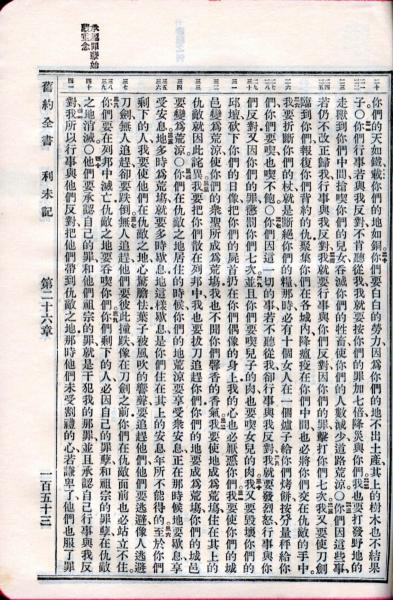 你們的天如鐵載你們的地如銅你們要白白的勞力因爲你們的地不出土產其上的樹木也不結果
子〇你們行事若與我反對不肯聽從我我就要按你們的罪加七倍降災與你們我也要打發野地的
走獸到你們中間搶喫你們的兒女吞滅你們的牲畜使你們的人數減少道路荒涼〇你們因這些事
若仍不改正歸我行事與我反對我就要行事與你們反對因你們的罪擊打你們七次我又要使刀劍
臨到你們報復你們背約的仇聚集你們在各城內降瘟疫在你們中間也必將你們交在仇敵的手中
我要折斷你們的杖就是斷絕你們的糧那時必有十個女人在一個爐子給你們烤餅按分量秤給你
們你們要喫也喫不飽〇你們因這一切的事若不聽從我卻行事與我反對我就要發烈怒行事與你
們反對又因你們的罪懲罰你們七次並且你們要喫兒子的肉也要喫女兒的肉我又要毀壞你們的
邱壇砍下你們的日像把你們的屍首扔在你們偶像的身上我的心也必厭惡你們我要使你們的城
邑變爲荒涼使你們的衆聖所成爲荒塲我也不聞你們馨香的香氣我要使地成爲荒塲住在其上的
仇敵就因此詫異我要把你們散在列邦中我也要拔刀追趕你們你們的地要成爲荒塲你們的城邑
要變爲荒涼〇你們在仇敵之地居住的時候你們的地荒涼要享受衆安息正在那時候地要歇息享
受安息地多時爲荒塲就要多時歇息地這樣歇息是你們住在其上的安息年所不能得的至於你們
剩下的人我要使他們在仇敵之地心驚膽怯葉子被風吹的響聲要追趕他們他們要逃避像人逃避
刀劍無人追趕卻要跌倒無人追趕他們要彼此撞跌像在刀劍之前你們在仇敵面前也必站立不住
你們要在列邦中滅亡仇敵之地要吞喫你們你們剩下的人必因自己的罪孽和祖宗的罪孽在仇敵
之地消滅〇他們要承認自己的罪和他們祖宗的罪就是干犯我的那罪並且承認自己行事與我反
對我所以行事與他們反對把他們帶到仇敵之地那時他們未受割禮的心若謙卑了他們也服了罪
舊約全書　利未記　第二十六章　一百五十三